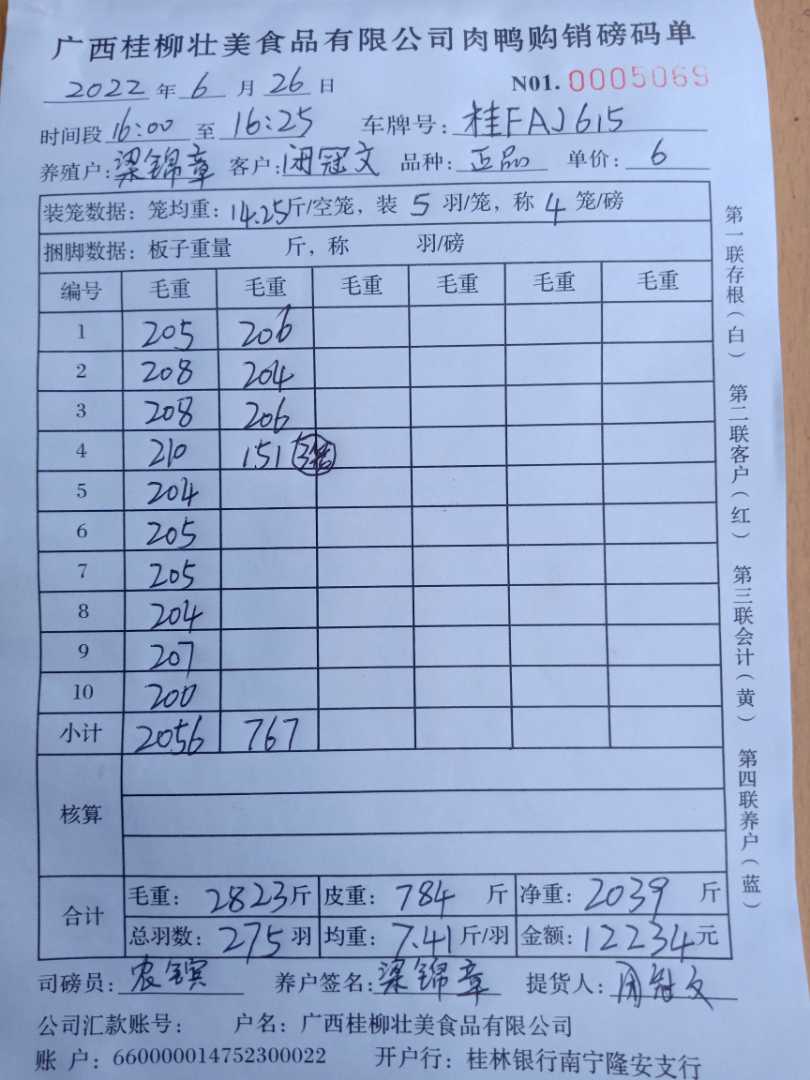 广西桂柳壮美食品有限公司肉鸭购销磅码单
2022 年 6 月 26 日 N01. 0005069
时间段 16:00 至 16:25 车牌号: 桂FAJ615
养殖户: 梁锦章 客户: 闭冠文 品种: 正品 单价: 6
装笼数据: 笼均重: 14.25斤/空笼, 装 5 羽/笼, 称 4 笼/磅
捆脚数据: 板子重量 斤, 称 羽/磅
编号 毛重 毛重 毛重 毛重 毛重 毛重
1 205 206
2 208 204
3 208 206
4 210 151
5 204
6 205
7 205
8 204
9 207
10 200
小计 2056 767
核算
合计 毛重: 2823斤 皮重: 784 斤 净重: 2039 斤
总羽数: 275 羽 均重: 7.41 斤/羽 金额: 12234元
司磅员: 农 养户签名: 梁锦章 提货人: 闭冠文
公司汇款账号: 户名: 广西桂柳壮美食品有限公司
账 户: 660000014752300022 开户行: 桂林银行南宁隆安支行
第一联存根(白) 第二联客户(红) 第三联会计(黄) 第四联养户(蓝)